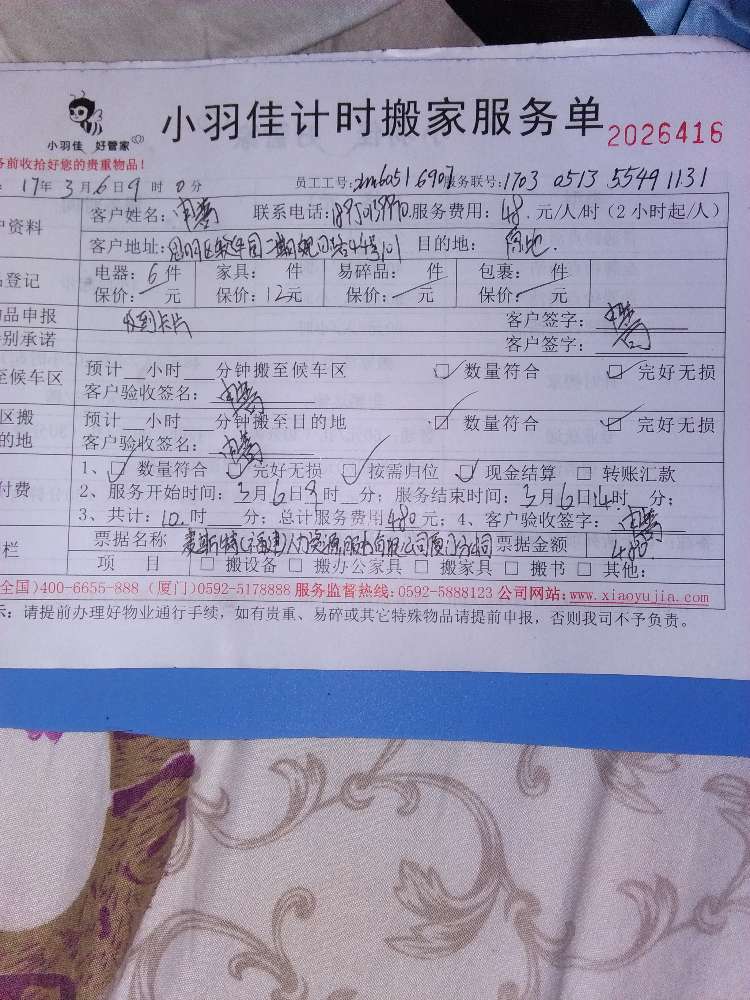 小羽佳计时搬家服务单 2026416
小羽佳 好管家
务前收拾好您的贵重物品!
: 17年3月6日9时0分 员工工号: 6907 服务联号:1703 0513 5549 1131
户资料
客户姓名: 联系电话: 服务费用:48.元/人/时(2小时起/人)
客户地址: 目的地:
品登记
电器:6件 家具: 件 易碎品: 件 包裹: 件
保价: 元 保价:12元 保价: 元 保价: 元
物品申报 收到卡片 客户签字:
特别承诺 客户签字:
至候车区
预计__小时__分钟搬至候车区 数量符合 完好无损
客户验收签名:
区搬
的地
预计__小时__分钟搬至目的地 数量符合 完好无损
客户验收签名:
付费
1、 数量符合 完好无损 按需归位 现金结算 转账汇款
2、服务开始时间:3月6日9时__分;服务结束时间:3月6日14时__分;
3、共计:10.时__分;总计服务费用480元;4、客户验收签字:
栏
票据名称 人力资源服务有限公司厦门分公司 票据金额 480
项 目 搬设备 搬办公家具 搬家具 搬书 其他:
全国)400-6655-888 (厦门)0592-5178888 服务监督热线:0592-5888123 公司网站:www.xiaoyujia.com
示:请提前办理好物业通行手续,如有贵重、易碎或其它特殊物品请提前申报,否则我司不予负责。